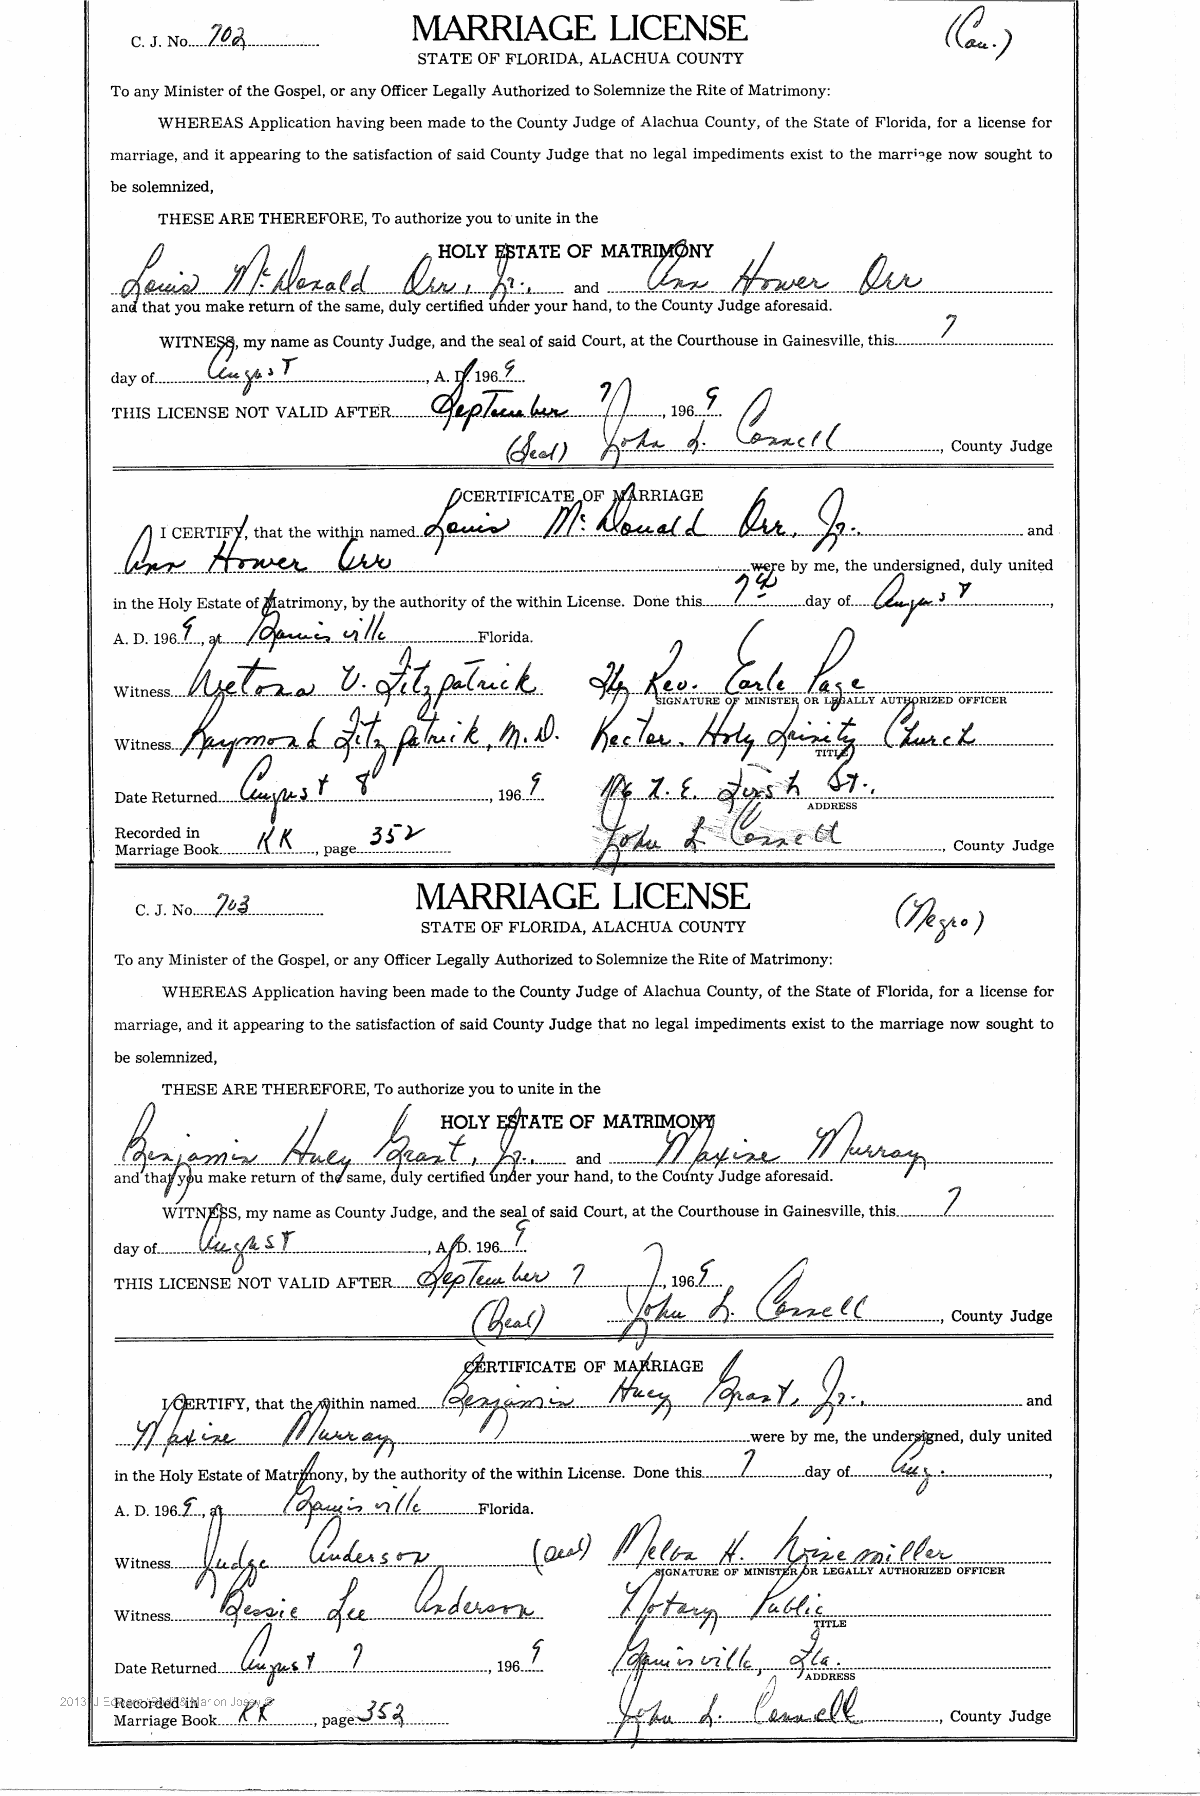 C. J. No. 702
MARRIAGE LICENSE
(Cau.)
STATE OF FLORIDA, ALACHUA COUNTY
To any Minister of the Gospel, or any Officer Legally Authorized to Solemnize the Rite of Matrimony:
WHEREAS Application having been made to the County Judge of Alachua County, of the State of Florida, for a license for
marriage, and it appearing to the satisfaction of said County Judge that no legal impediments exist to the marriage now sought to
be solemnized,
THESE ARE THEREFORE, To authorize you to unite in the
HOLY ESTATE OF MATRIMONY
Louis McDonald Orr, Jr., and Ann Hower Orr
and that you make return of the same, duly certified under your hand, to the County Judge aforesaid.
WITNESS, my name as County Judge, and the seal of said Court, at the Courthouse in Gainesville, this 7
day of August, A. D. 1969
THIS LICENSE NOT VALID AFTER September 7, 1969
(Seal) John L. Connell, County Judge
CERTIFICATE OF MARRIAGE
I CERTIFY, that the within named Louis McDonald Orr, Jr. and
Ann Hower Orr were by me, the undersigned, duly united
in the Holy Estate of Matrimony, by the authority of the within License. Done this 7th day of August,
A. D. 1969, at Gainesville Florida.
Witness Wetona V. Fitzpatrick The Rev. Earle Page
SIGNATURE OF MINISTER OR LEGALLY AUTHORIZED OFFICER
Witness Raymond Fitzpatrick, M.D. Rector. Holy Trinity Church
TITLE
Date Returned August 8, 1969 N. E. First St.,
ADDRESS
Recorded in
Marriage Book KK, page 352 John L Connell, County Judge
C. J. No. 703
MARRIAGE LICENSE
(Negro)
STATE OF FLORIDA, ALACHUA COUNTY
To any Minister of the Gospel, or any Officer Legally Authorized to Solemnize the Rite of Matrimony:
WHEREAS Application having been made to the County Judge of Alachua County, of the State of Florida, for a license for
marriage, and it appearing to the satisfaction of said County Judge that no legal impediments exist to the marriage now sought to
be solemnized,
THESE ARE THEREFORE, To authorize you to unite in the
HOLY ESTATE OF MATRIMONY
Benjamin Huey Grant, Jr., and Maxine Murray
and that you make return of the same, duly certified under your hand, to the County Judge aforesaid.
WITNESS, my name as County Judge, and the seal of said Court, at the Courthouse in Gainesville, this 7
day of August, A. D. 1969
THIS LICENSE NOT VALID AFTER September 7, 1969
(Seal) John L. Connell, County Judge
CERTIFICATE OF MARRIAGE
I CERTIFY, that the within named Benjamin Huey Grant, Jr., and
Maxine Murray were by me, the undersigned, duly united
in the Holy Estate of Matrimony, by the authority of the within License. Done this 7 day of Aug.,
A. D. 1969, at Gainesville Florida.
Witness Judge Anderson (seal) Melba H. Winemiller
SIGNATURE OF MINISTER OR LEGALLY AUTHORIZED OFFICER
Witness Bessie Lee Anderson Notary Public
TITLE
Date Returned August 7, 1969 Gainesville, Fla.
ADDRESS
Recorded in
Marriage Book KK, page 352 John L. Connell, County Judge